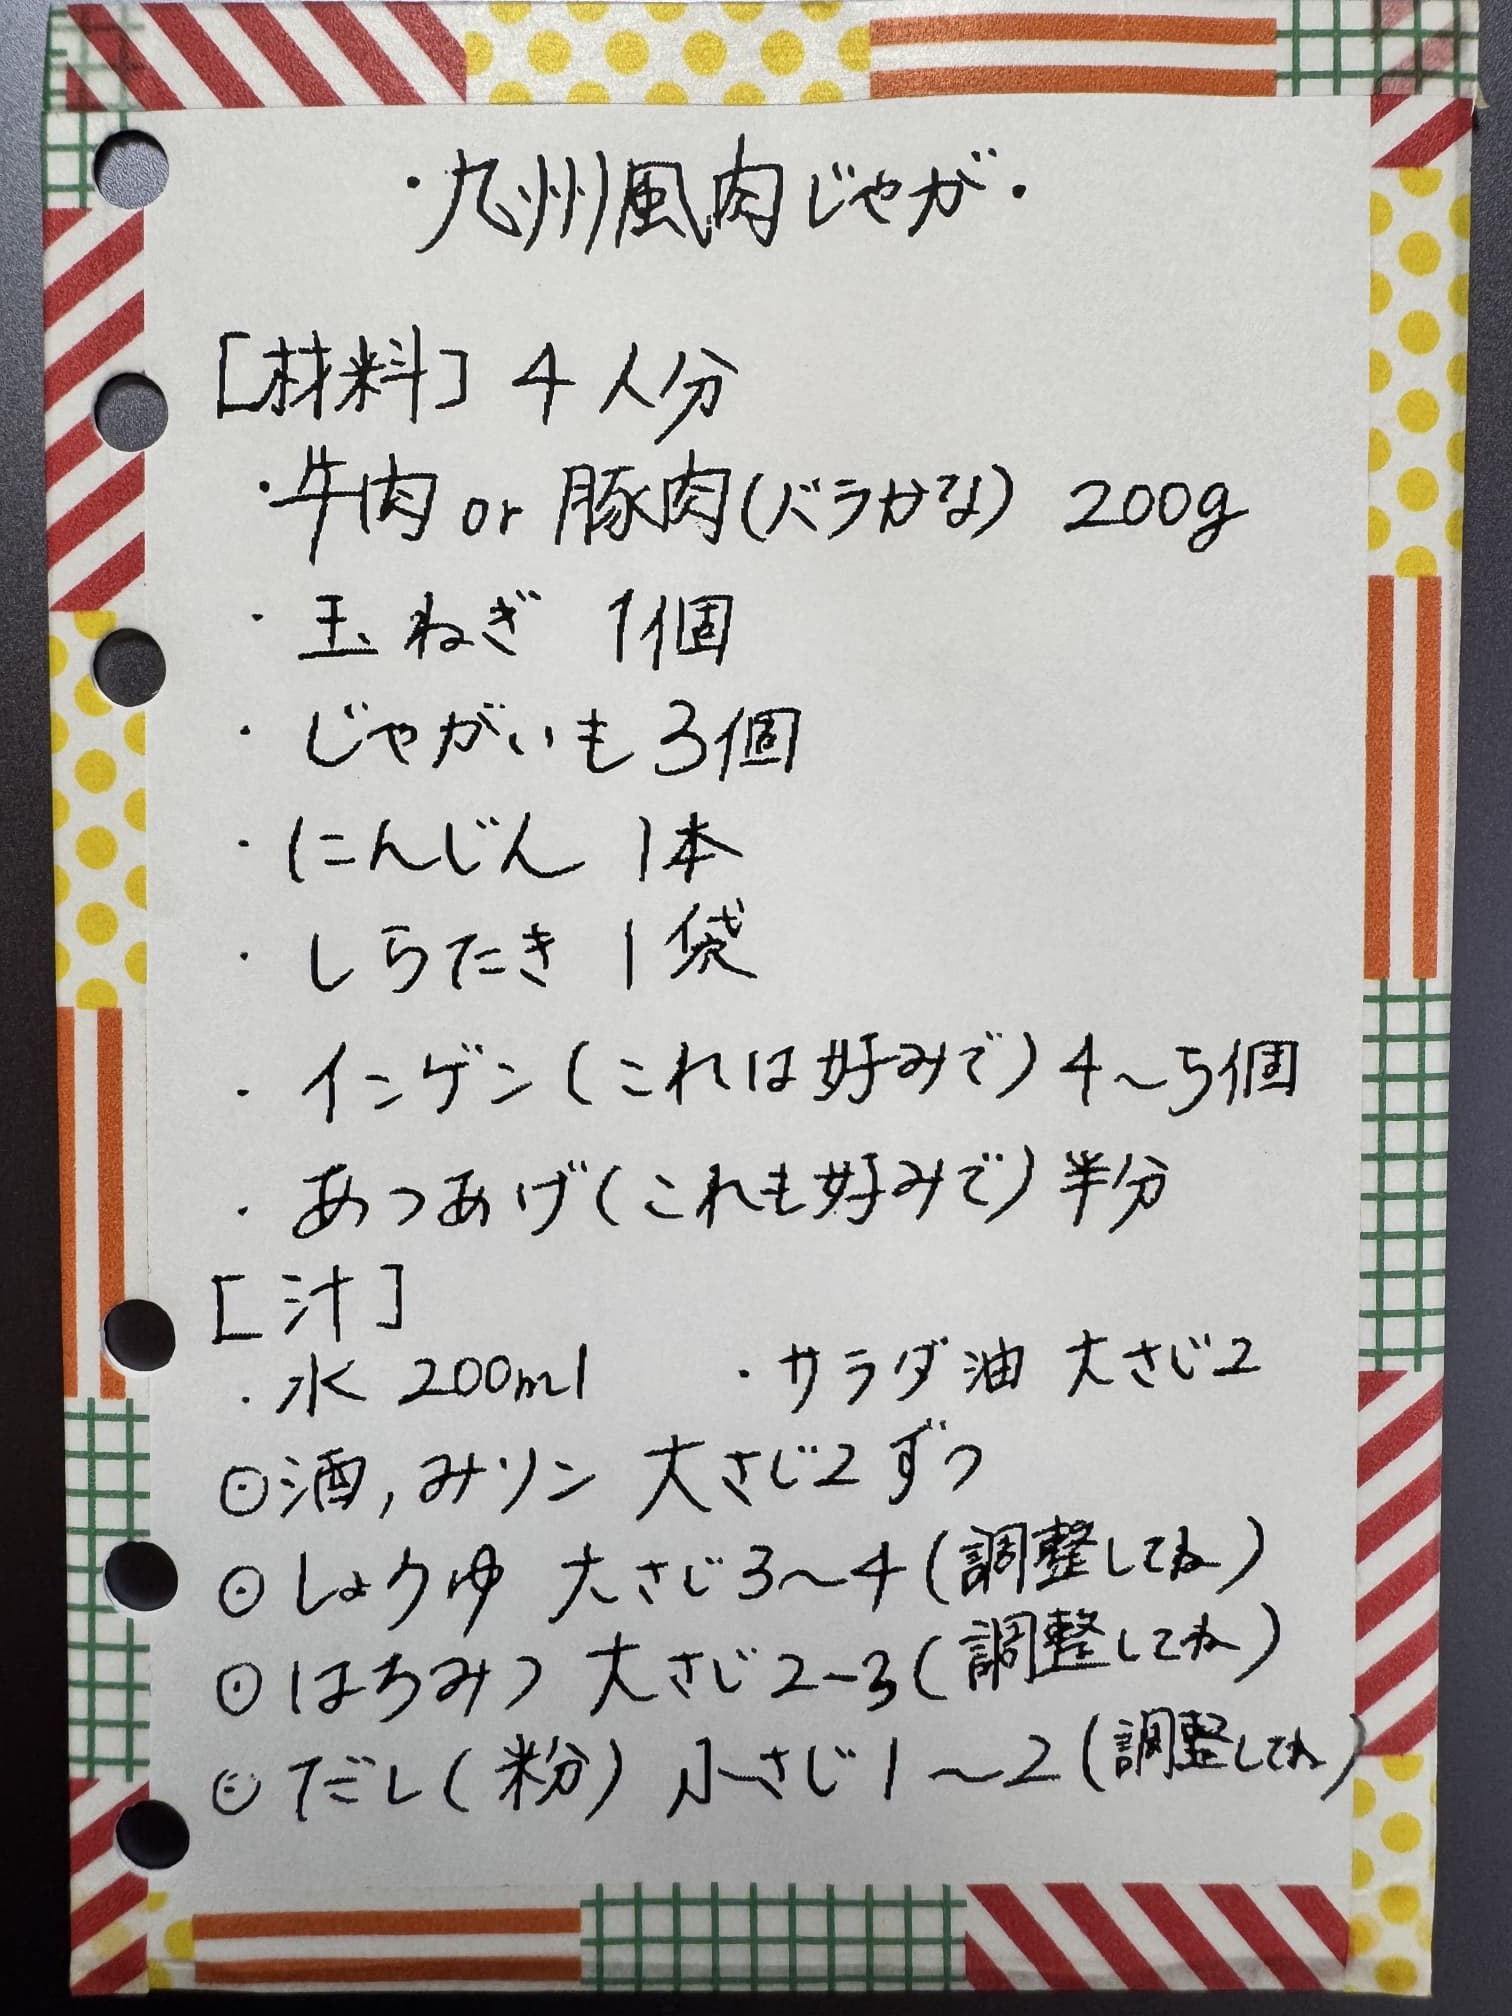 ・九州風肉じゃが・
[材料] 4人分
・牛肉 or 豚肉(バラかな) 200g
・玉ねぎ 1個
・じゃがいも 3個
・にんじん 1本
・しらたき 1袋
・インゲン(これは好みで) 4〜5個
・あつあげ(これも好みで) 半分
[汁]
・水 200ml ・サラダ油 大さじ2
⊙酒,みリン 大さじ2ずつ
⊙しょうゆ 大さじ3〜4(調整してね)
⊙はちみつ 大さじ2-3(調整してね)
⊙だし(粉) 小さじ1〜2(調整してね)